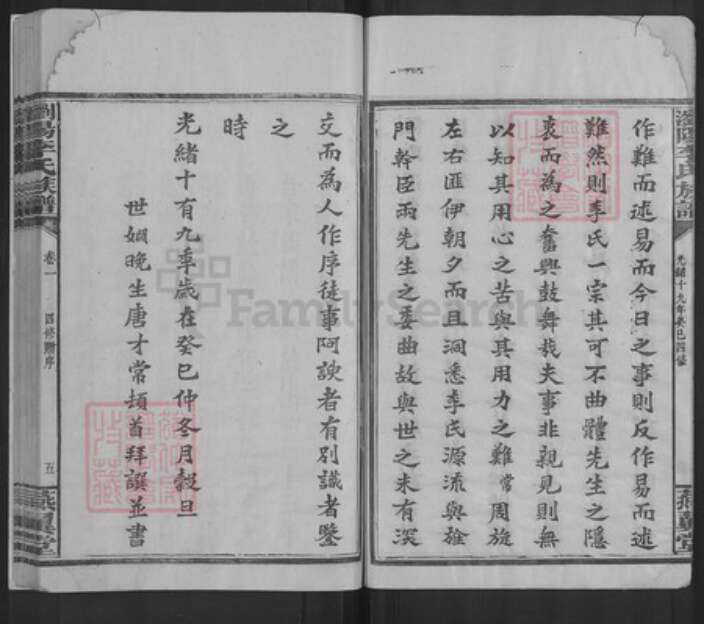 瀏陽李氏族譜
光緒十九年癸巳四修
作難而述易而今日之事則反作易而述
難然則李氏一宗其可不曲體先生之隱
衷而為之奮興鼓舞哉夫事非親見則無
以知其用心之苦與其用力之難常周旋
左右匪伊朝夕而且洞悉李氏源流與雒
門幹臣兩先生之委曲故與世之未有深
交而為人作序徒事阿諛者有別識者鑒
之
時
光緒十有九年歲在癸巳仲冬月穀旦
世姻晚生唐才常頓首拜譔並書
瀏陽李氏族譜
卷一
四修贈序
五
FamilySearch